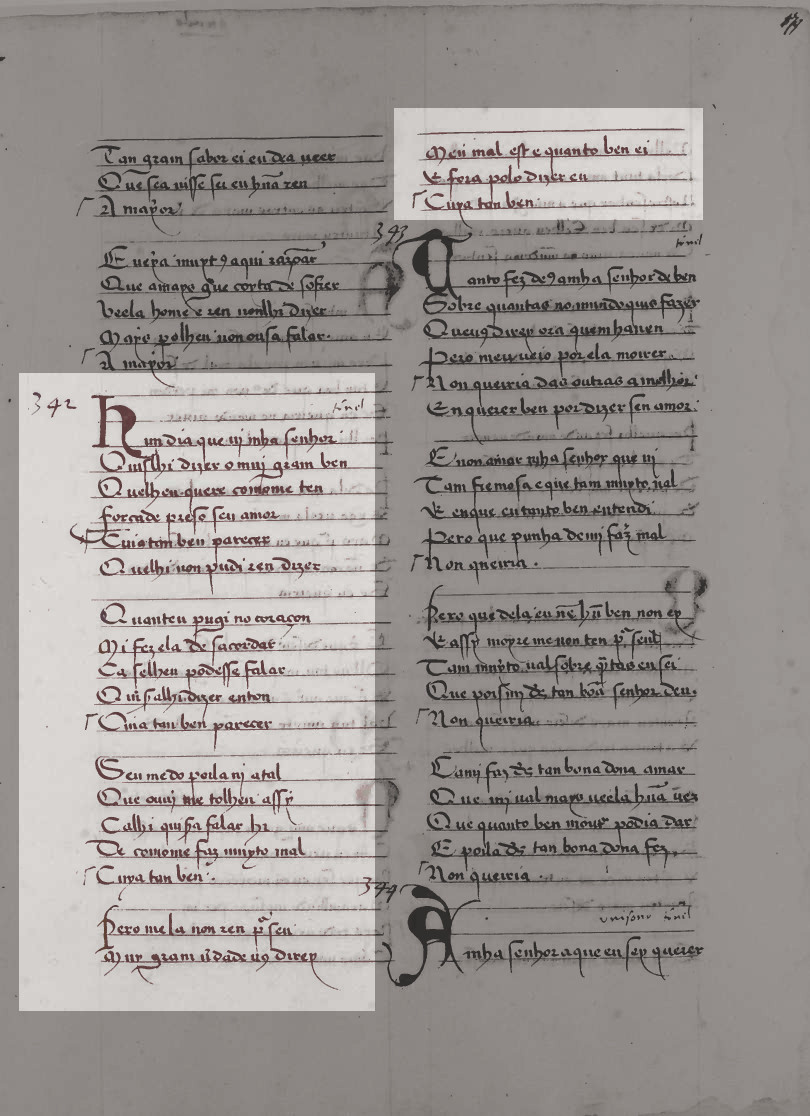 Tan gram sabor ei eu dea ueer
Que sea uisse sei eu hũa ren
A mayor
E ueia muyt
Que amaro que coyta de sofrer
Veela home e ren nonlhi dizer
Mays polhen non ousa falar.
A mayor
342
tornel
Hun dia que ui mha senhor
Quislhi dizer o mui gram ben
Quelheu quere comome ten
Forçade preso seu amor
Cuia tan ben parecer
Quelhi non pudi ren dizer
Quanteu pugi no coraçon
Mi fez ela desacordar
Ca selheu podesse falar
Quisalhi dizer enton
Cuia tan ben parecer
Seu medo poila ui atal
Que ouui me tolheu assy
Calhi quisa falar hi
De comome faz muyto mal
Cuya tan ben.
Pero mela non ren p̃ sen
Muy gram u̅dade u9 direy
Meu mal est e quanto ben ei
E fora polo dizer eu
Cuya tan ben
343
tornel
Quanto fez de9 a mha senhor de ben
Sobre quantas no mundo quis fazer
Queu9 direy ora quem han en
Pero meu ueio por ela morrer
Non queiria das outras a melhor
En querer ben por dizer sen amor.
E non amar mha senhor que ui
Tam fremosa e que tam muyto ual
E en que eu tanto ben entendi
Pero que punha de mi faz̃ mal
Non queiria.
Pero que dela eu nẽ hũ ben non ey
E assy moyre me non ten p̃
Tam muyto ual sobre q̃tas eu sei
Que pois mj d̃s tan bõa senhor deu.
Non queiria.
Cami faz d̃s tan bona dona amar
Que mi ual mays ueela hũa uez
Que quanto ben mour̃ podia dar
E poila d̃s tan bona dona fez.
Non queiria.
344
unisono tornel
A mha senhor a que eu sey querer